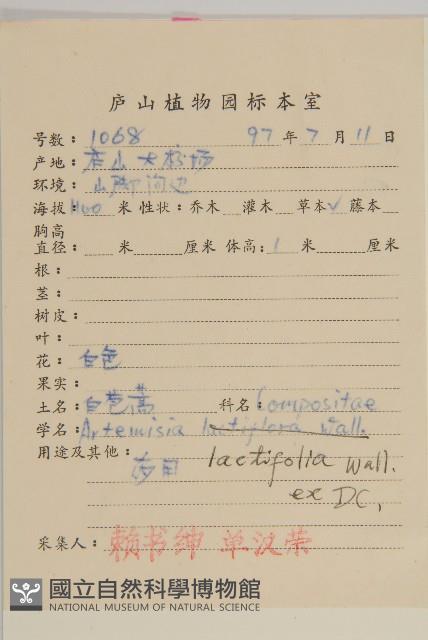 庐山植物园标本室
号数：1068 97年7月11日
产地：庐山大校场
环境：山脚沟边
海拔：1100米 性状：乔木 灌木 草本✓藤本
胸高
直径： 米 厘米 体高：1 米 厘米
根：
茎：
树皮：
叶：
花：白色
果实：
土名：白苞蒿 科名：Compositae
学名：Artemisia lactiflora Wall.
用途及其他：药用 lactifolia Wall.
ex DC.
采集人：赖书绅 单汉荣
國立自然科學博物館
NATIONAL MUSEUM OF NATURAL SCIENCE